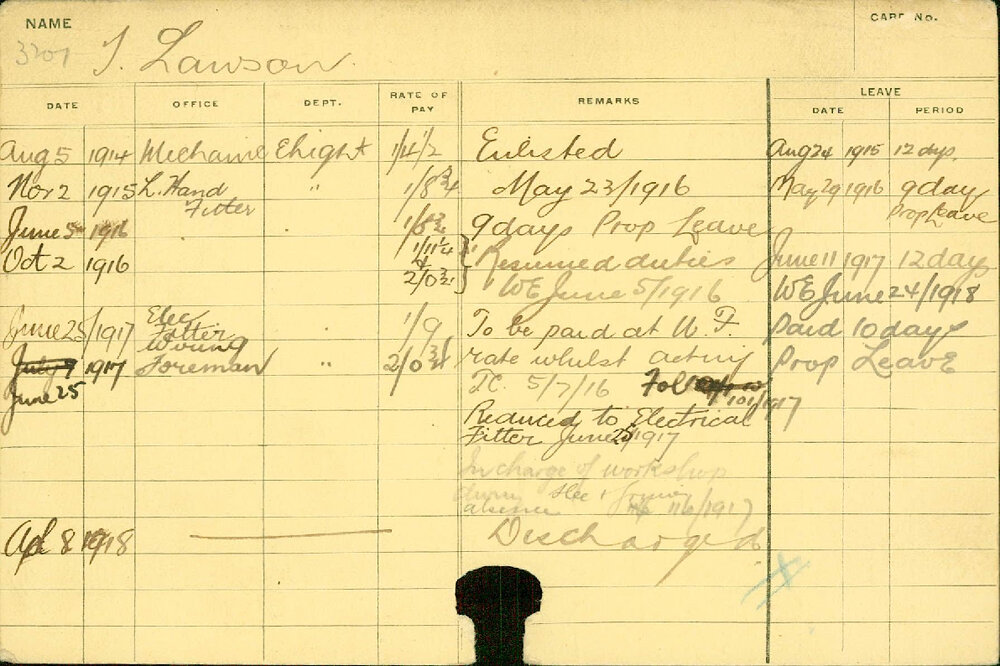 NAME
CARD No.
3207 T. Lawson.
DATE OFFICE DEPT. RATE OF PAY REMARKS LEAVE
DATE PERIOD
Aug 5 1914 Mechanic Ehight 1/4 1/2 Enlisted Aug 24 1915 12 days.
Nov 2 1915 L. Hand Fitter " 1/8 3/4 May 23/1916 May 29 1916 9 day Prop Leave
June 5 1916 9 days Prop Leave
Oct 2 1916 1/11 1/4 & 2/0 3/4 } Resumed duties June 11 1917 12 days
WE June 5/1916 WE June 24/1918
June 25/1917 Elec Fitter " 1/9 To be paid at W. F. Paid 10 days
July 9 1917 Wiring Foreman " 2/0 3/4 rate whilst acting Prop Leave
June 25 TC. 5/7/16 Fol 101/1917
Reduced to Electrical
Fitter June 25/1917
In charge of workshop
during
absence 11/6/1917
Apl 8 1918 Discharged